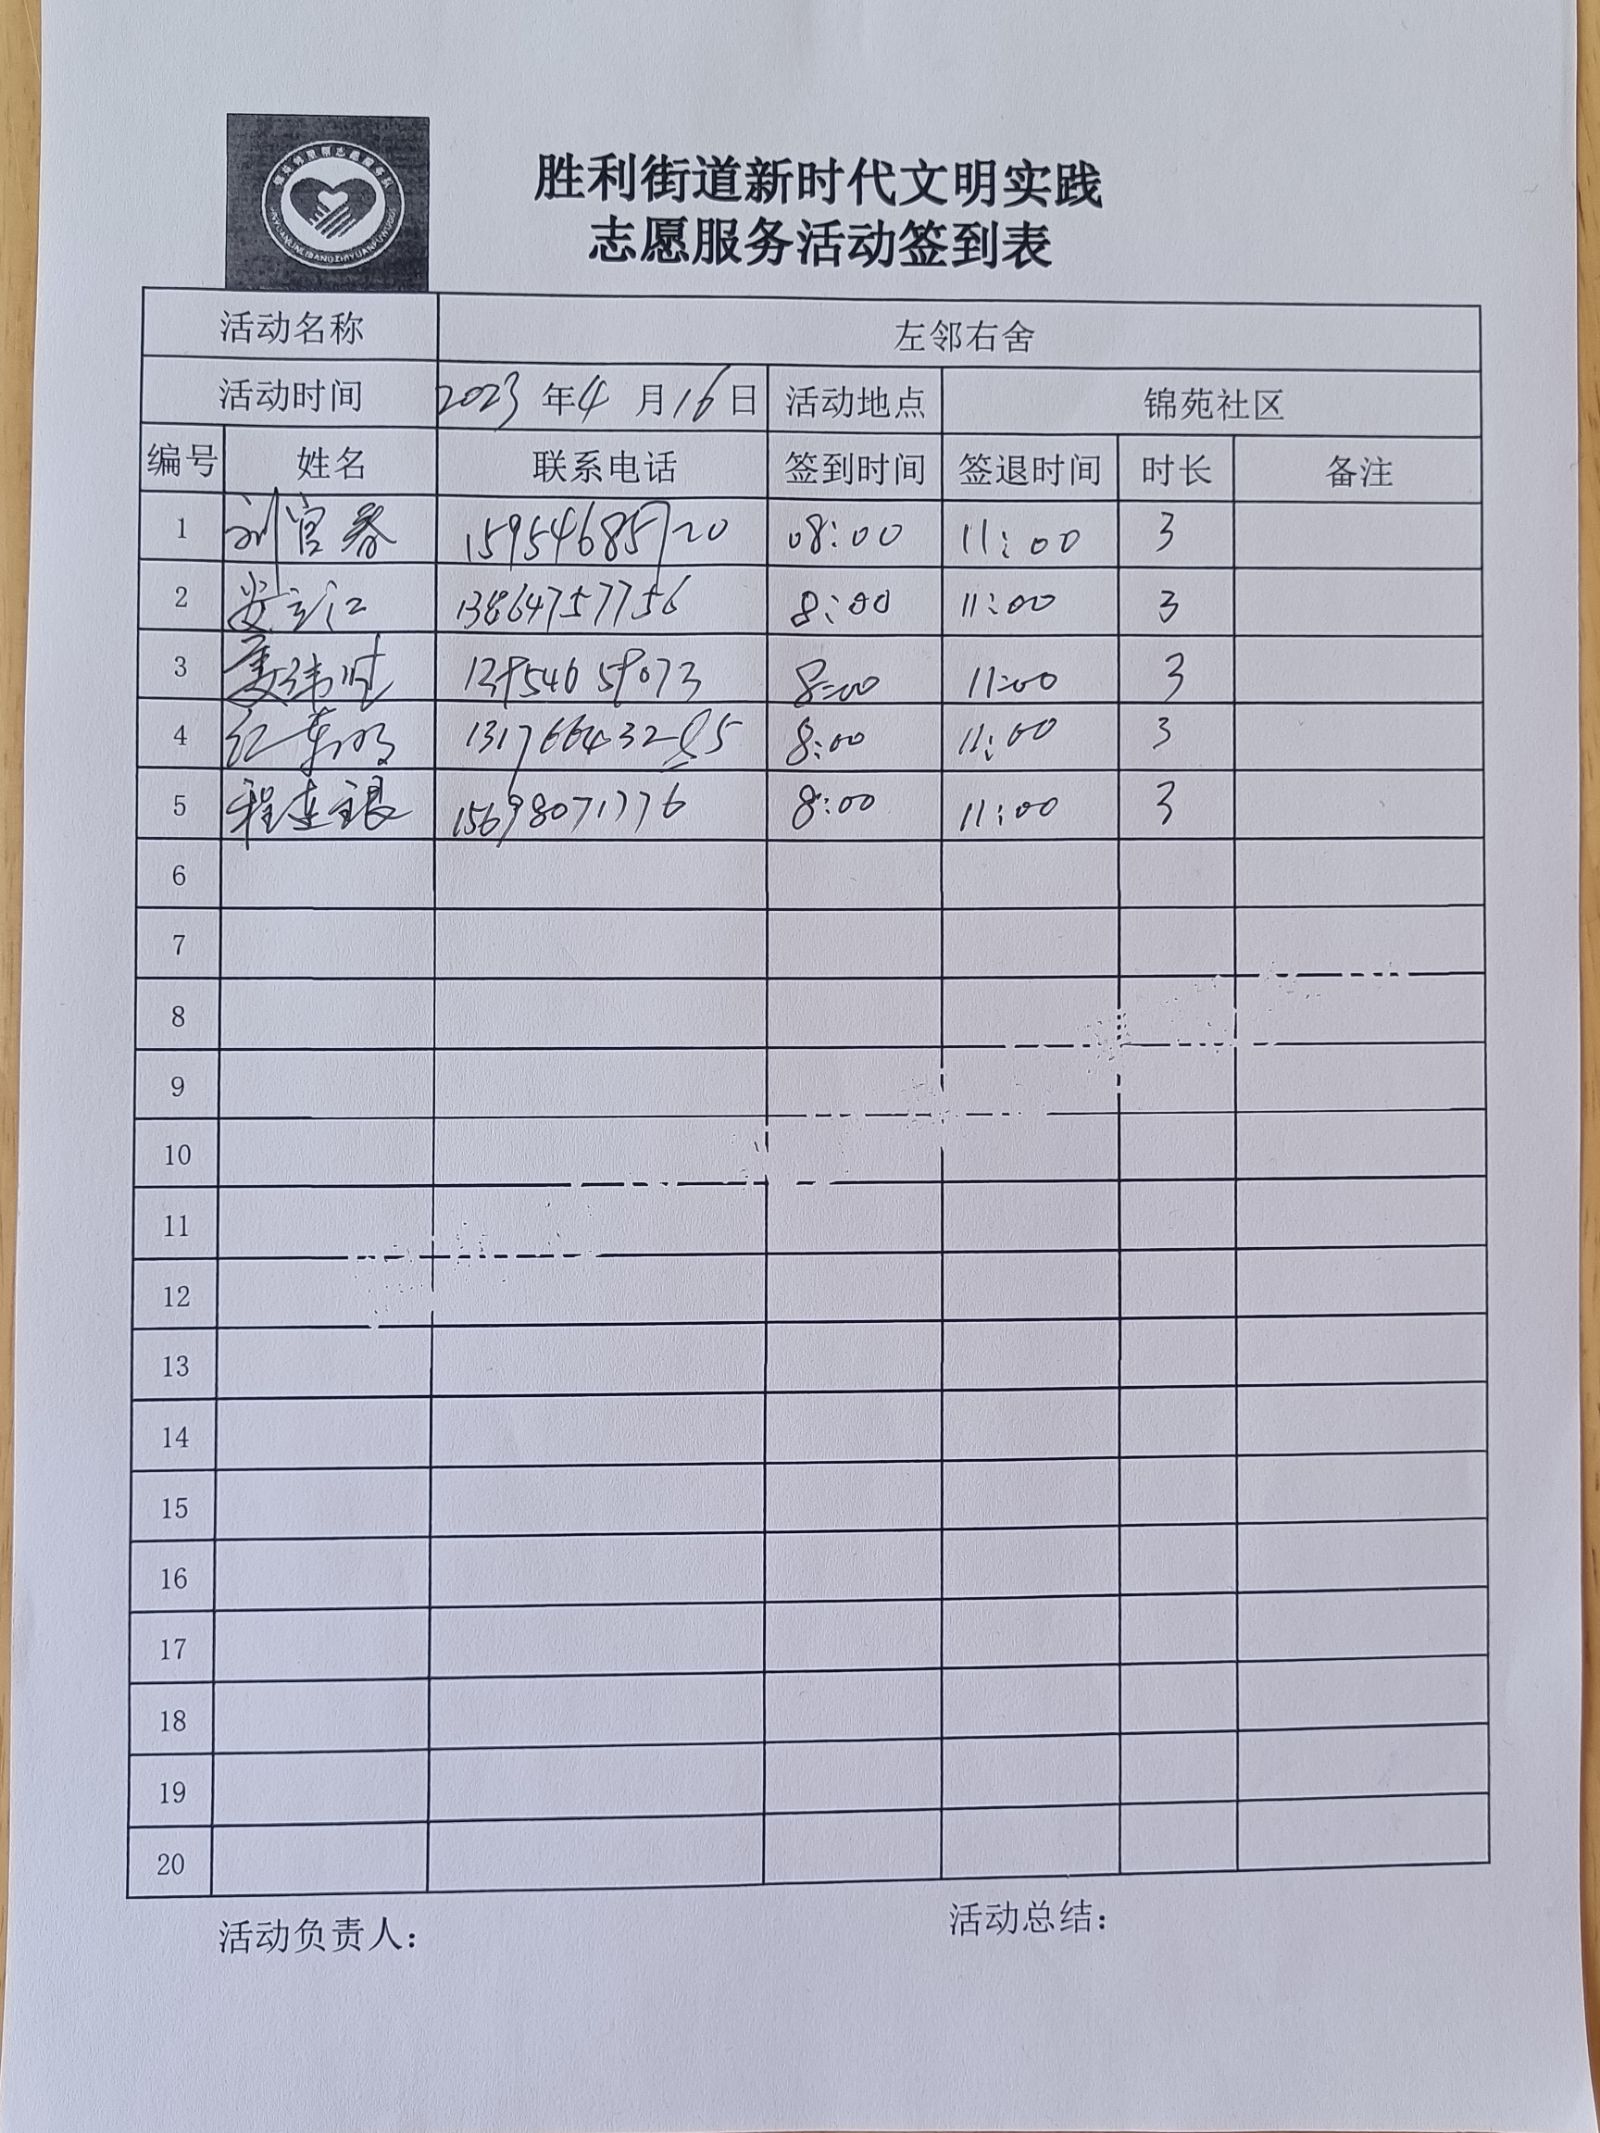 胜利街道新时代文明实践
志愿服务活动签到表
活动名称 左邻右舍
活动时间 2023 年 4 月 16 日 活动地点 锦苑社区
编号 姓名 联系电话 签到时间 签退时间 时长 备注
1 刘官春 15954685720 08:00 11:00 3
2 13864757756 8:00 11:00 3
3 8:00 11:00 3
4 8:00 11:00 3
5 程连银 15698071776 8:00 11:00 3
6
7
8
9
10
11
12
13
14
15
16
17
18
19
20
活动负责人: 活动总结: